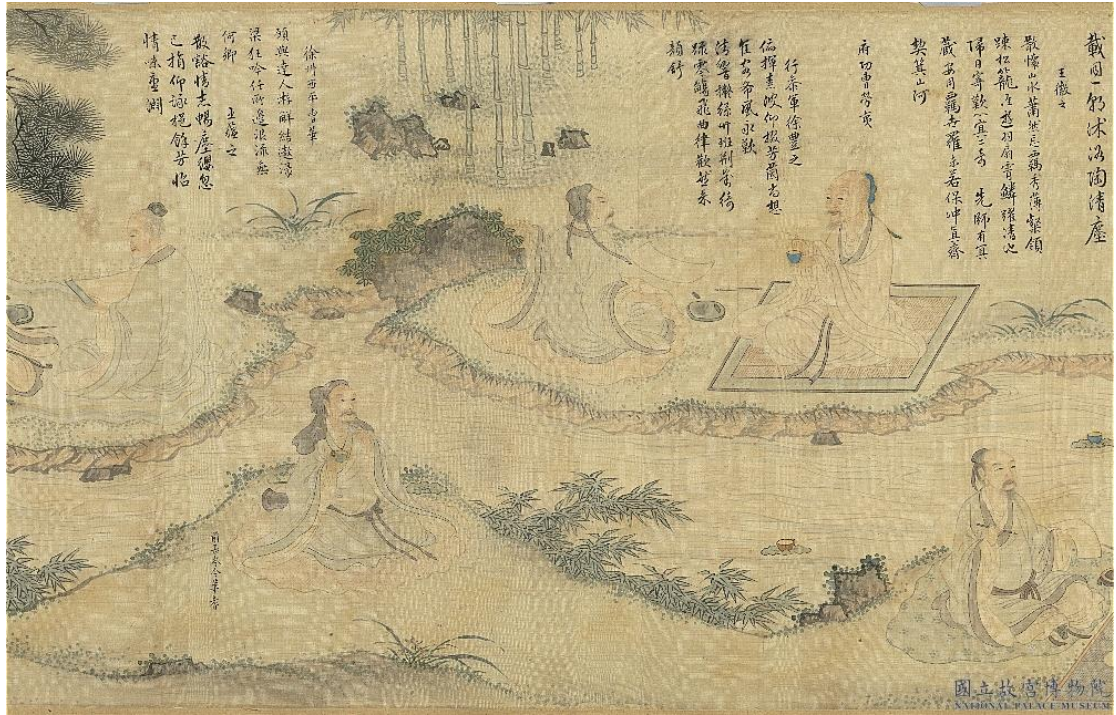 載同一朝沐浴陶清塵
王徽之
散懷山水蕭然忘羈秀薄粲穎
踈松籠崖遊羽扇霄鱗躍清池
歸目寄歡心冥二奇　先師有冥
藏安用羈世羅未若保沖真齊
契箕山河
府功曹勞夷
行參軍徐豐之
俯揮素波仰掇芳蘭尚想
佳客希風永歎
清響擬絲竹班荊對綺
疎零觴飛曲津歡然朱
顏舒
徐州西平曹華
願與達人遊解結遨濠
梁狂吟任所適浪流無
何鄉
王蘊之
散豁情志暢塵纓忽
已捐仰詠挹餘芳怡
情味重淵
前長岑令華耆
國立故宮博物院
NATIONAL PALACE MUSEUM